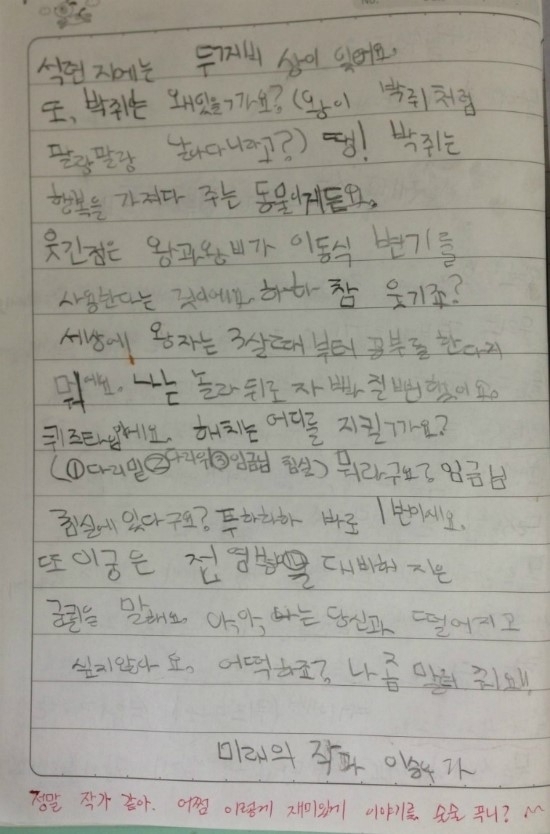 석련지에는 두꺼비 상이 있어요.
또, 박쥐는 왜있을까요? (왕이 박쥐처럼
팔랑팔랑 날라다니라고?) 땡! 박쥐는
행복을 가져다 주는 동물이거든요.
웃긴점은 왕과왕비가 이동식 변기를
사용한다는 것이에요. 하하 참 웃기죠?
세상에 왕자는 3살때부터 공부를 한다지
뭐에요. 나는 놀라 뒤로 자빠질뻔했어요.
퀴즈타임에요. 해치는 어디를 지킬까요?
(①다리밑②다리위③임금님 침실) 뭐라구요? 임금님
침실에 있다구요? 푸하하하 바로 1번이세요.
또 이궁은 대비해 지은
궁궐을 말해요. 아, 아, 나는 당신과 떨어지고
싶지않아요. 어떡하죠? 나 좀 말려 줘요!!
미래의 작가
정말 작가 같아. 어쩜 이렇게 재미있게 이야기를 술술 푸니? ^^